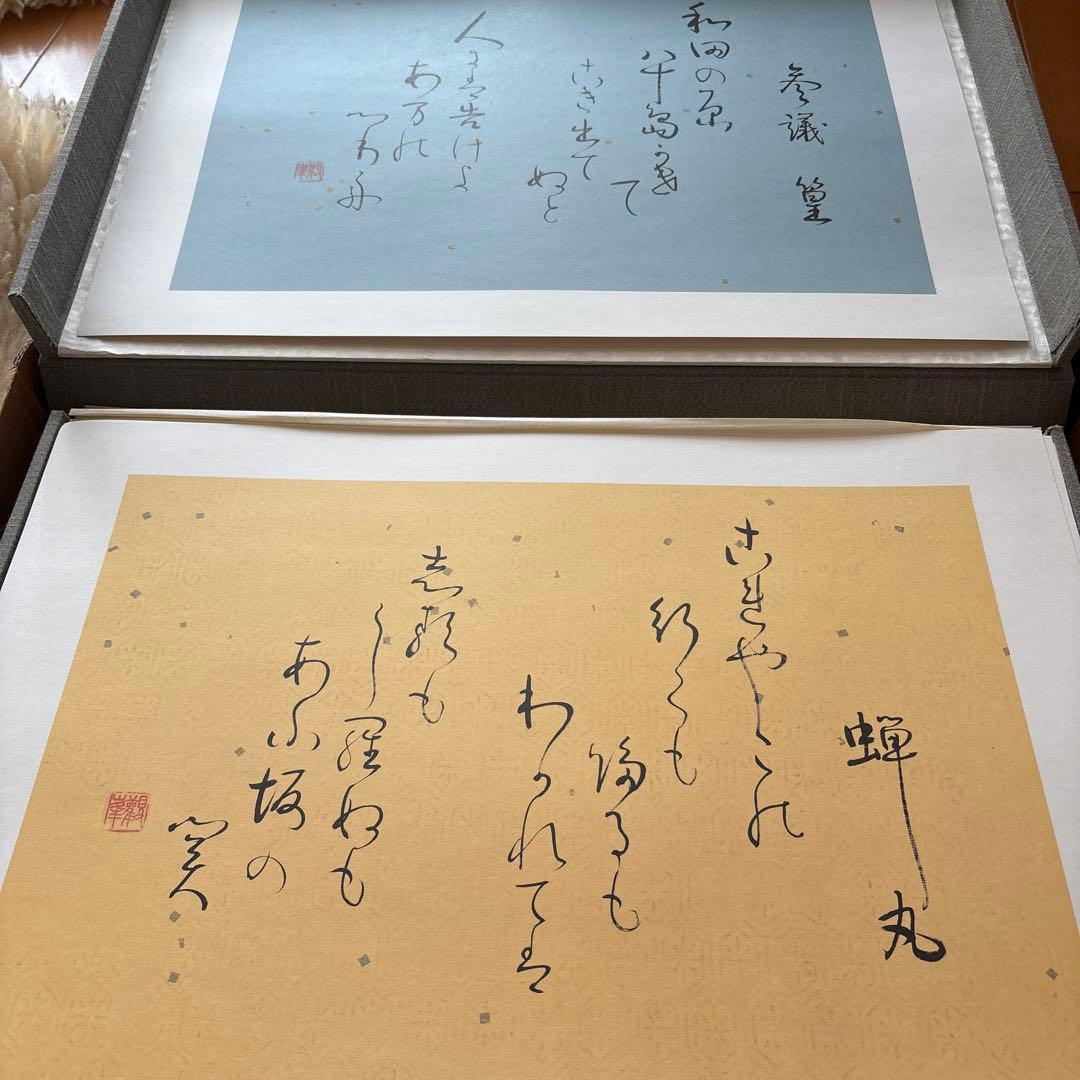 参議 篁
和田の原
八十島かけて
こき出て
ぬと
人には告けよ
あ万の
つり舟
蝉丸
これやこの
行くも
帰るも
わかれては
志るも
し羅ぬも
あふ坂の
関